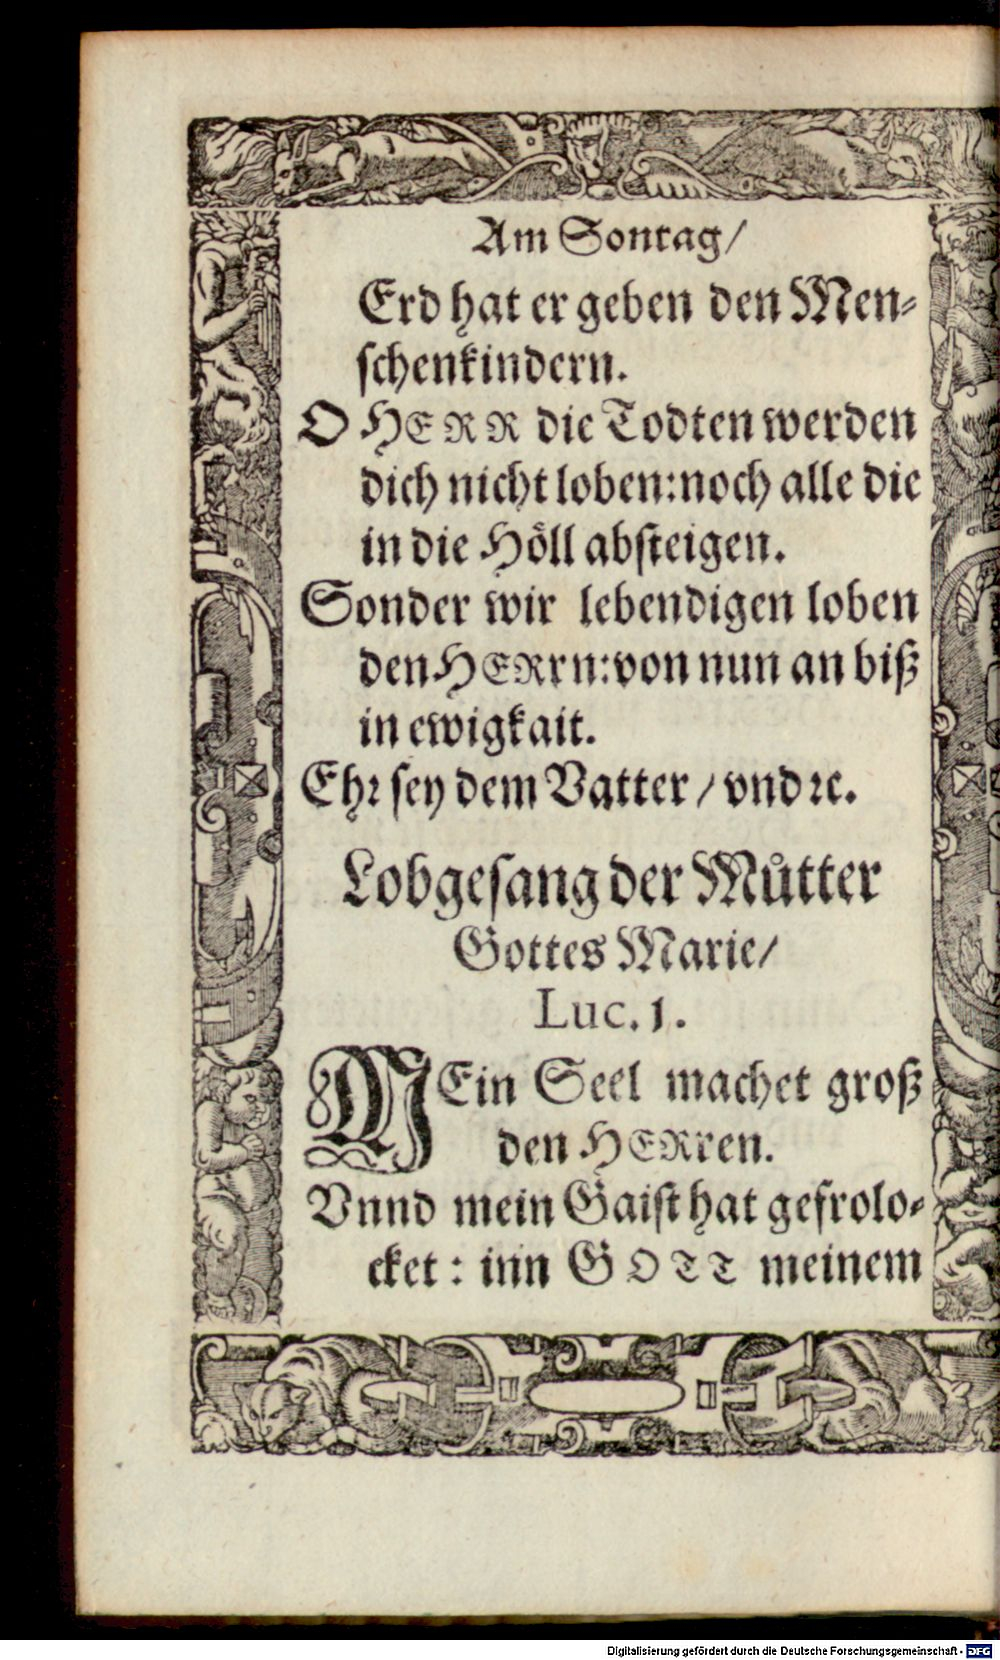 Am Sontag/
Erd hat er geben den Men⸗
schenkindern.
O HERR die Todten werden
dich nicht loben: noch alle die
in die Höll absteigen.
Sonder wir lebendigen loben
den HERrn: von nun an biß
in ewigkait.
Ehꝛ sey dem Vatter / vnd ꝛc.
Lobgesang der Můtter
Gottes Marie/
Luc. 1.
MEin Seel machet groß
den HERren.
Vnnd mein Gaist hat gefrolo⸗
cket: inn GOTT meinem
Digitalisierung gefördert durch die Deutsche Forschungsgemeinschaft - DFG